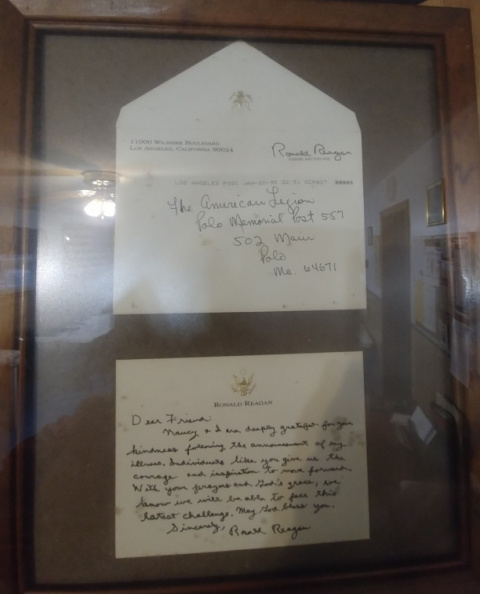 11000 Wilshire Boulevard
Los Angeles, California 90024
Ronald Reagan
LOS ANGELES
The American Legion
Polo Memorial Post 557
502 Main
Polo
Mo. 64671
Ronald Reagan
Dear Friend
Nancy & I are deeply grateful for your
kindness following the announcement of my
illness. Individuals like you give us the
courage and inspiration to move forward.
With your prayers and God's grace, we
know we will be able to face this
latest challenge. May God bless you.
Sincerely, Ronald Reagan